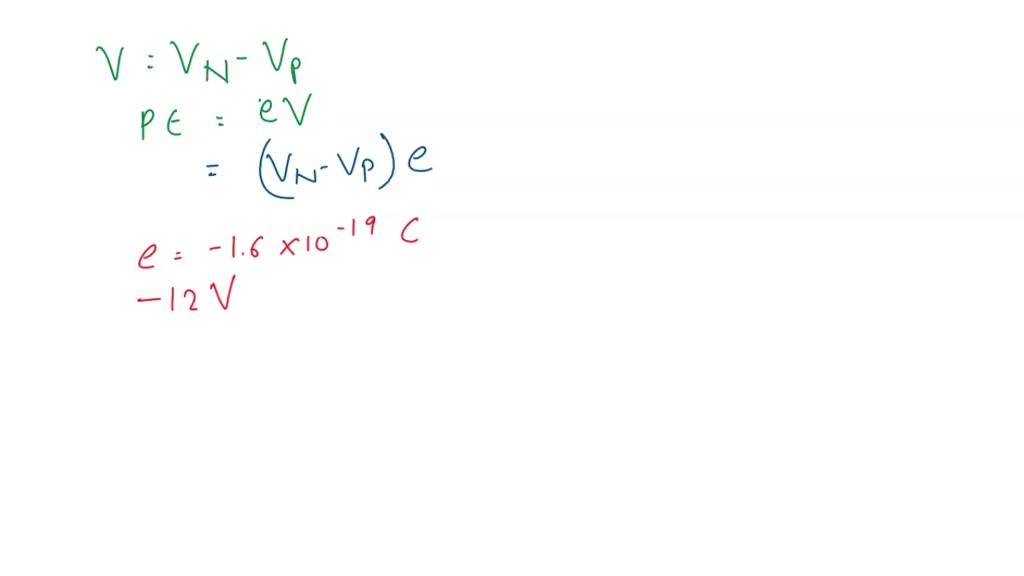 V = V_N - V_P
PE = eV
= (V_N - V_P) e
e = -1.6 × 10^-19 C
-12 V